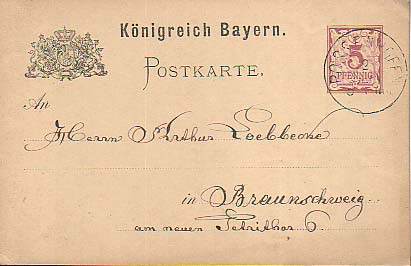 Königreich Bayern.
POSTKARTE.
5
PFENNIG
An
Herrn Arthur Loebbecke
in Braunschweig
am neuen Petrithor 6.